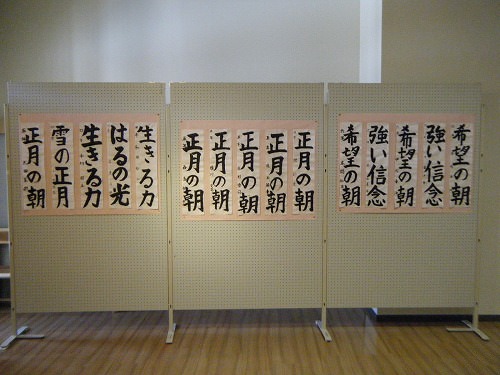 生きる力
はるの光
生きる力
雪の正月
正月の朝
正月の朝
正月の朝
正月の朝
正月の朝
正月の朝
希望の朝
強い信念
希望の朝
強い信念
希望の朝